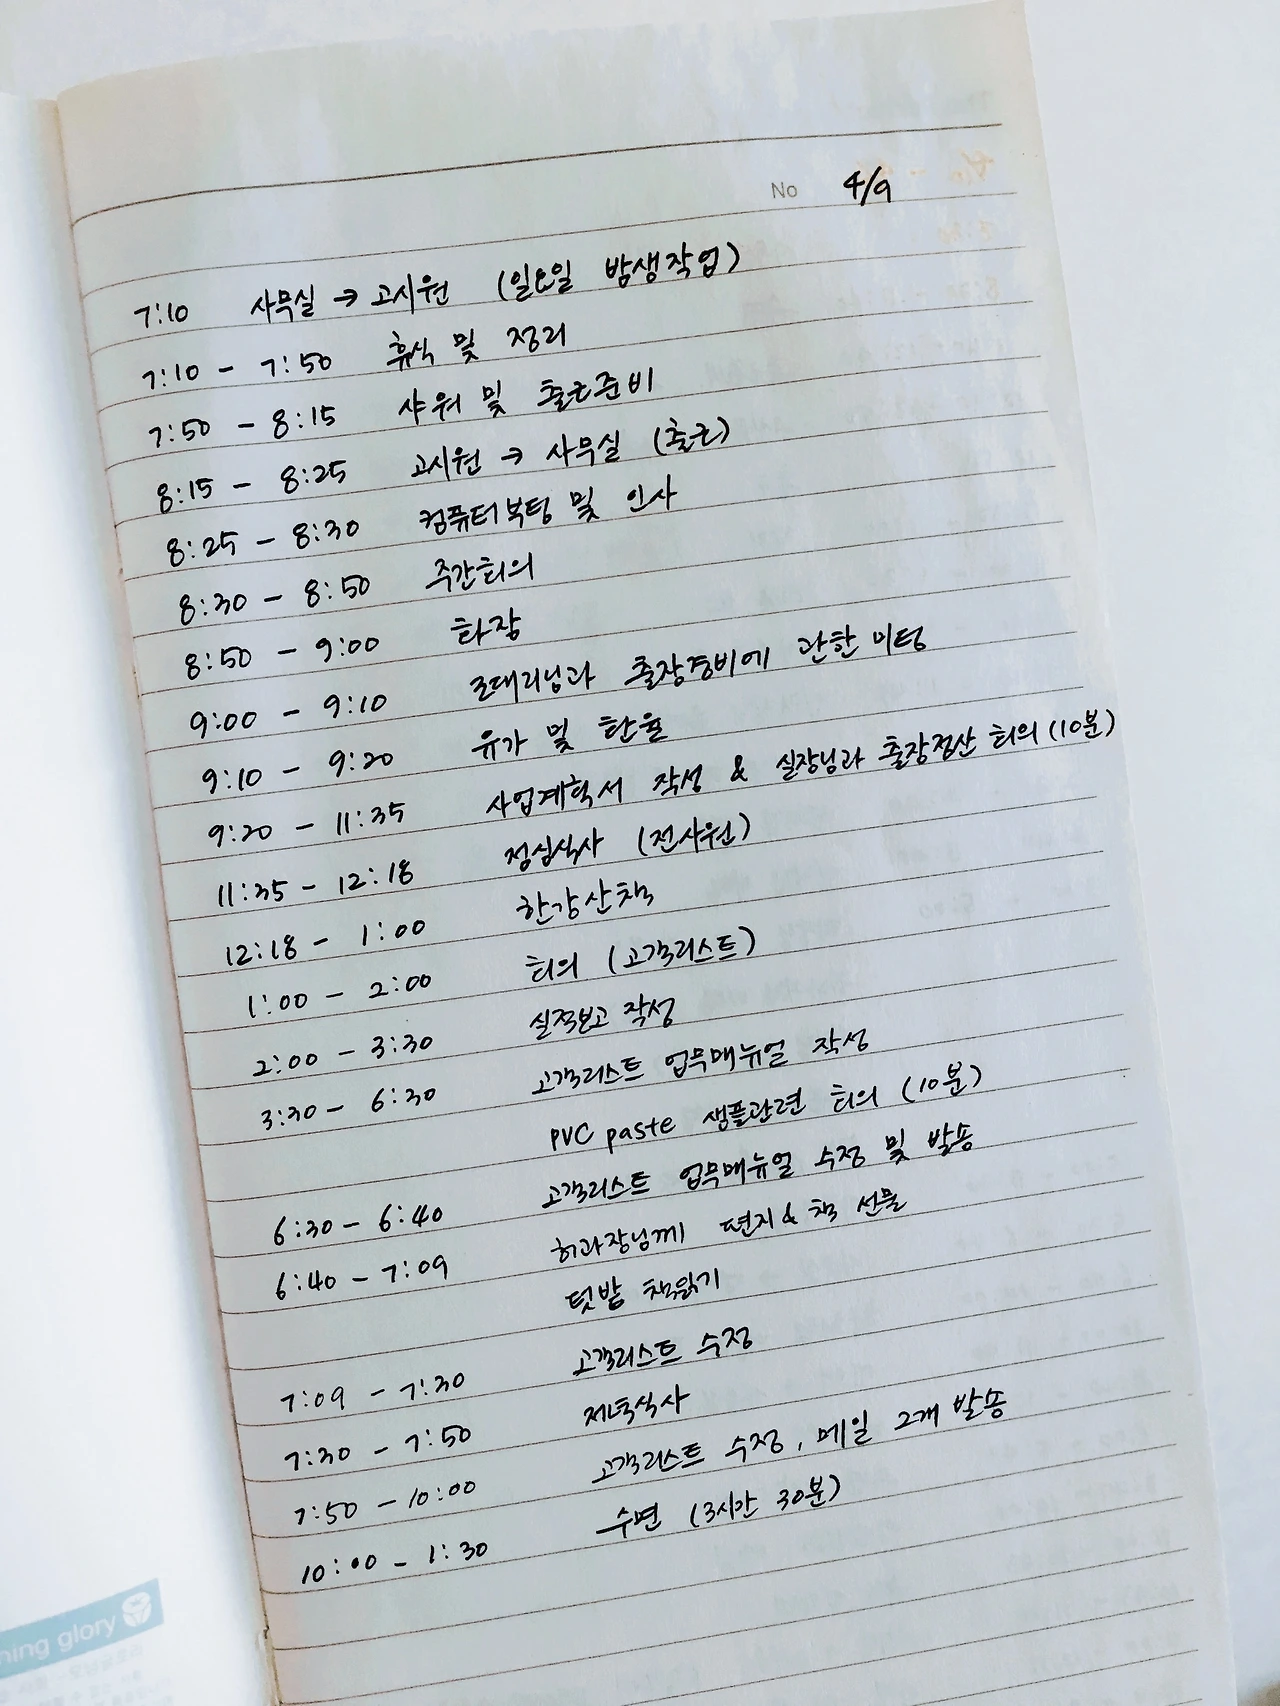 No 4/9
7:10 사무실 → 고시원 (일요일 밤샘작업)
7:10 - 7:50 휴식 및 정리
7:50 - 8:15 샤워 및 출근준비
8:15 - 8:25 고시원 → 사무실 (출근)
8:25 - 8:30 컴퓨터부팅 및 인사
8:30 - 8:50 주간회의
8:50 - 9:00 화장
9:00 - 9:10 조대리님과 출장경비에 관한 미팅
9:10 - 9:20 유가 및 환율
9:20 - 11:35 사업계획서 작성 & 실장님과 출장정산 회의 (10분)
11:35 - 12:18 점심식사 (전사원)
12:18 - 1:00 한강산책
1:00 - 2:00 회의 (고객리스트)
2:00 - 3:30 실적보고 작성
3:30 - 6:30 고객리스트 업무매뉴얼 작성
PVC paste 샘플관련 회의 (10분)
6:30 - 6:40 고객리스트 업무매뉴얼 수정 및 발송
6:40 - 7:09 허과장님께 편지 & 책 선물
텃밭 책읽기
7:09 - 7:30 고객리스트 수정
7:30 - 7:50 저녁식사
7:50 - 10:00 고객리스트 수정, 메일 2개 발송
10:00 - 1:30 수면 (3시간 30분)
ning glory